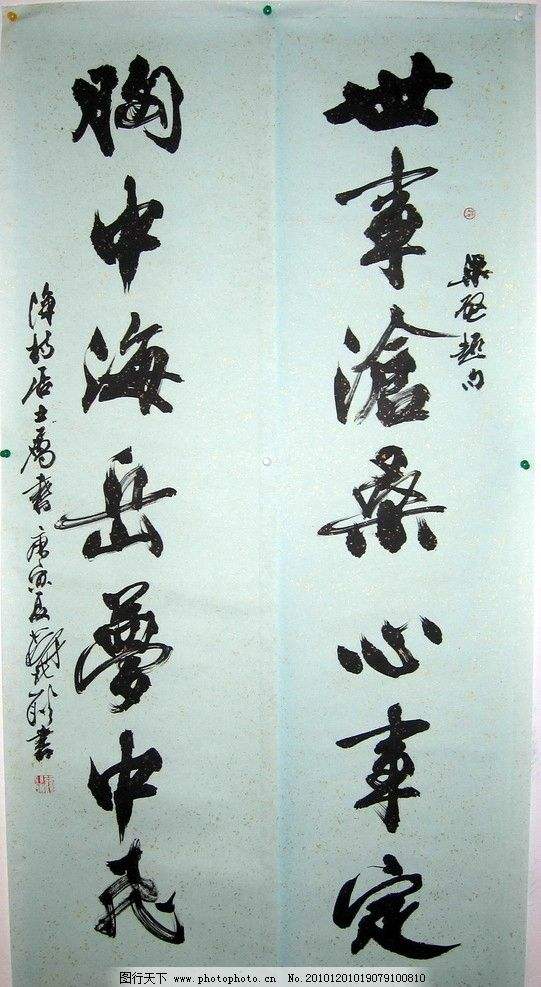 梁啟超句
世事滄桑心事定
胸中海岳夢中飛
居士屬書 庚寅夏 書
图行天下 www.photophoto.cn No.20101201019079100810